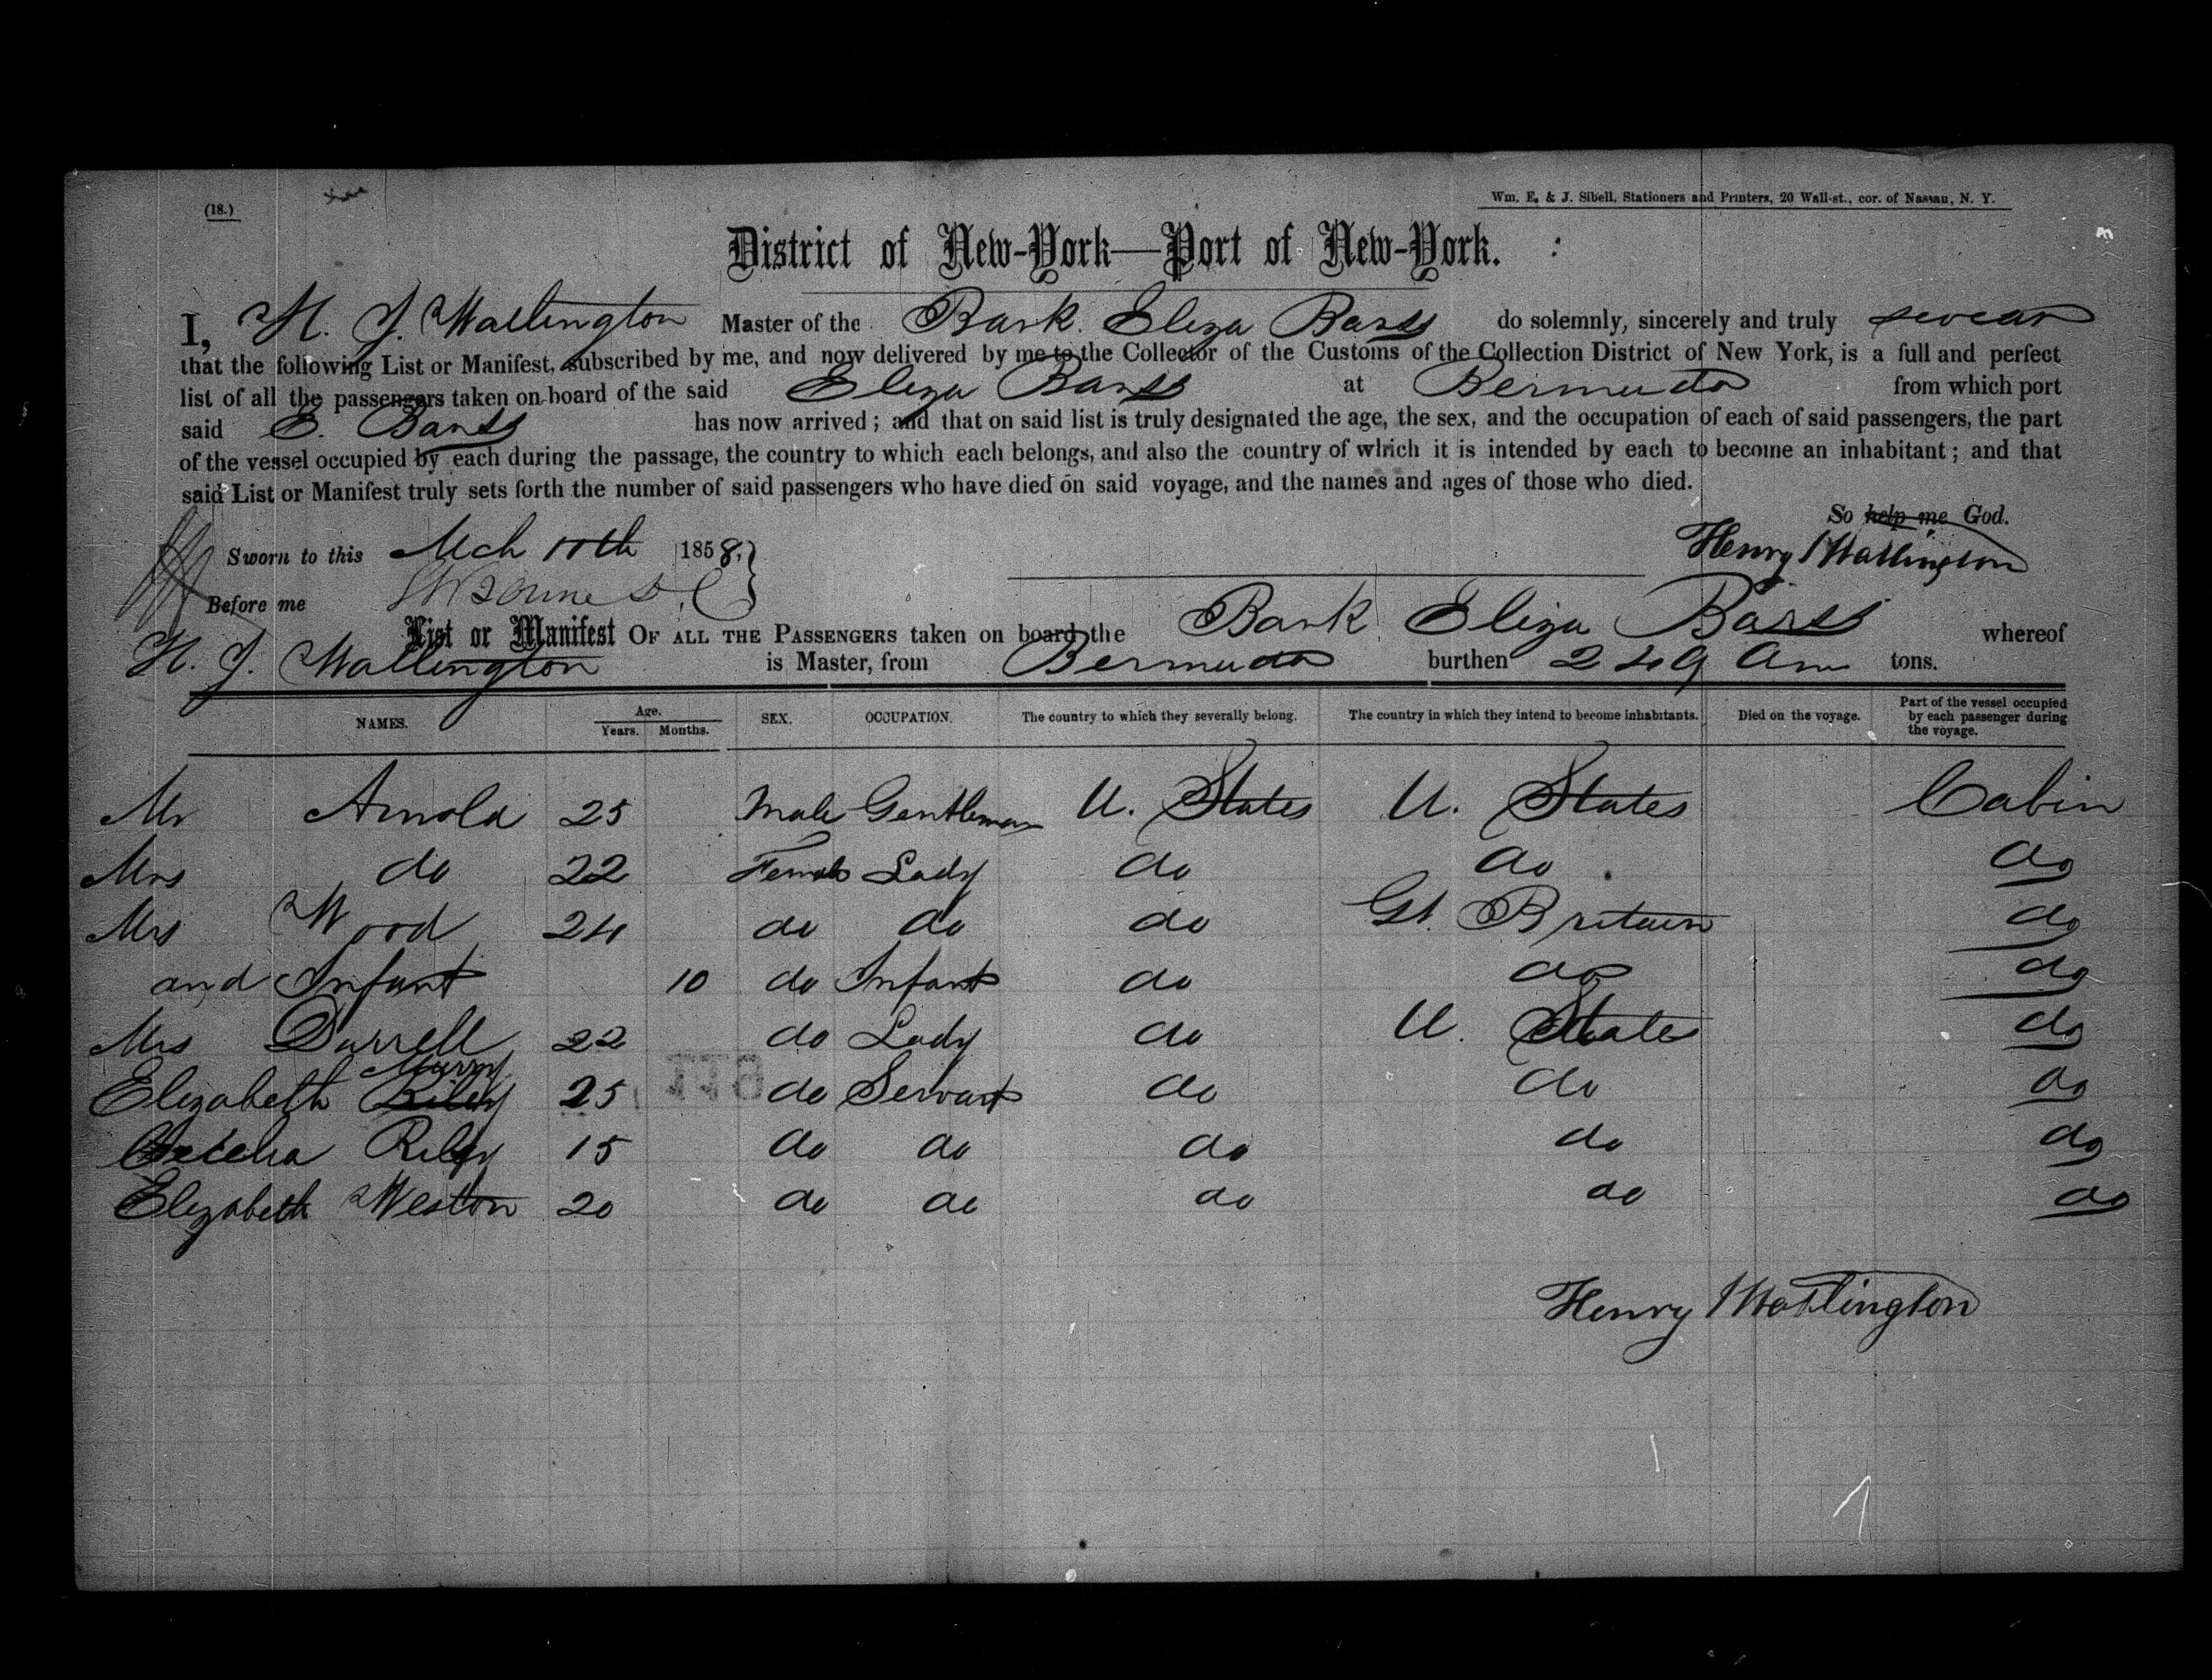 (18.)
Wm. E. & J. Sibell, Stationers and Printers, 20 Wall-st., cor. of Nassau, N. Y.
District of New-York—Port of New-York.
I, H. J. Watlington Master of the Bark Eliza Barss do solemnly, sincerely and truly swear
that the following List or Manifest, subscribed by me, and now delivered by me to the Collector of the Customs of the Collection District of New York, is a full and perfect
list of all the passengers taken on board of the said Eliza Barss at Bermuda from which port
said E. Barss has now arrived; and that on said list is truly designated the age, the sex, and the occupation of each of said passengers, the part
of the vessel occupied by each during the passage, the country to which each belongs, and also the country of which it is intended by each to become an inhabitant; and that
said List or Manifest truly sets forth the number of said passengers who have died on said voyage, and the names and ages of those who died.
So help me God.
Sworn to this Mch 1858. Henry J Watlington
Before me
List or Manifest OF ALL THE PASSENGERS taken on board the Bark Eliza Barss whereof
H. J. Watlington is Master, from Bermuda burthen 249 tons.
NAMES. Age. Years. Months. SEX. OCCUPATION. The country to which they severally belong. The country in which they intend to become inhabitants. Died on the voyage. Part of the vessel occupied by each passenger during the voyage.
Mr Arnold 25 Male Gentleman U. States U. States Cabin
Mrs do 22 Female Lady do do do
Mrs Wood 24 do do do Gt. Britain do
and Infant 10 do Infant do do do
Mrs Durrell 22 do Lady do U. States do
Elizabeth Riley 25 do Servant do do do
Riley 15 do do do do do
Elizabeth Weston 20 do do do do do
Henry J Watlington